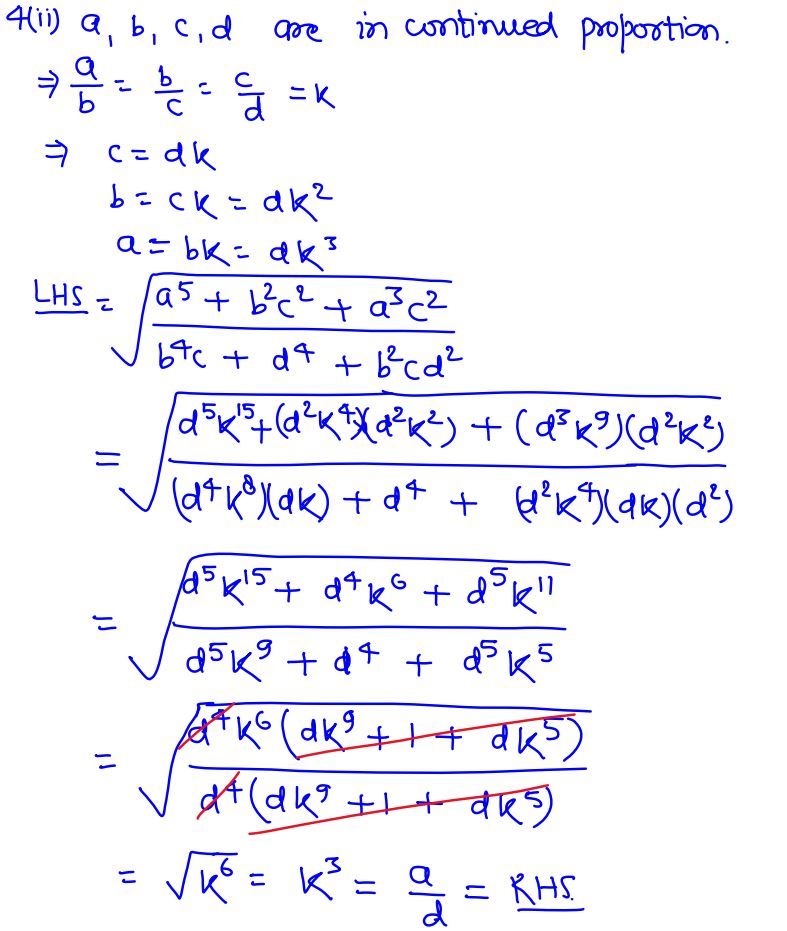 4(ii) a, b, c, d are in continued proportion.
⇒ a/b = b/c = c/d = k
⇒ c = dk
b = ck = dk²
a = bk = dk³
LHS = √((a⁵ + b²c² + a³c²)/(b⁴c + d⁴ + b²cd²))
= √((d⁵k¹⁵ + (d²k⁴)(d²k²) + (d³k⁹)(d²k²))/((d⁴k⁸)(dk) + d⁴ + (d²k⁴)(dk)(d²)))
= √((d⁵k¹⁵ + d⁴k⁶ + d⁵k¹¹)/(d⁵k⁹ + d⁴ + d⁵k⁵))
= √((d⁴k⁶(dk⁹ + 1 + dk⁵))/(d⁴(dk⁹ + 1 + dk⁵)))
= √k⁶ = k³ = a/d = RHS.